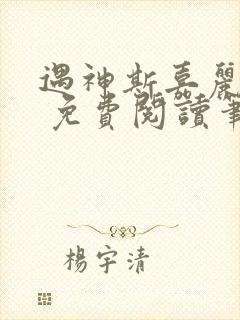 遇神斯嘉麗
免費閱讀筆
楊宇清